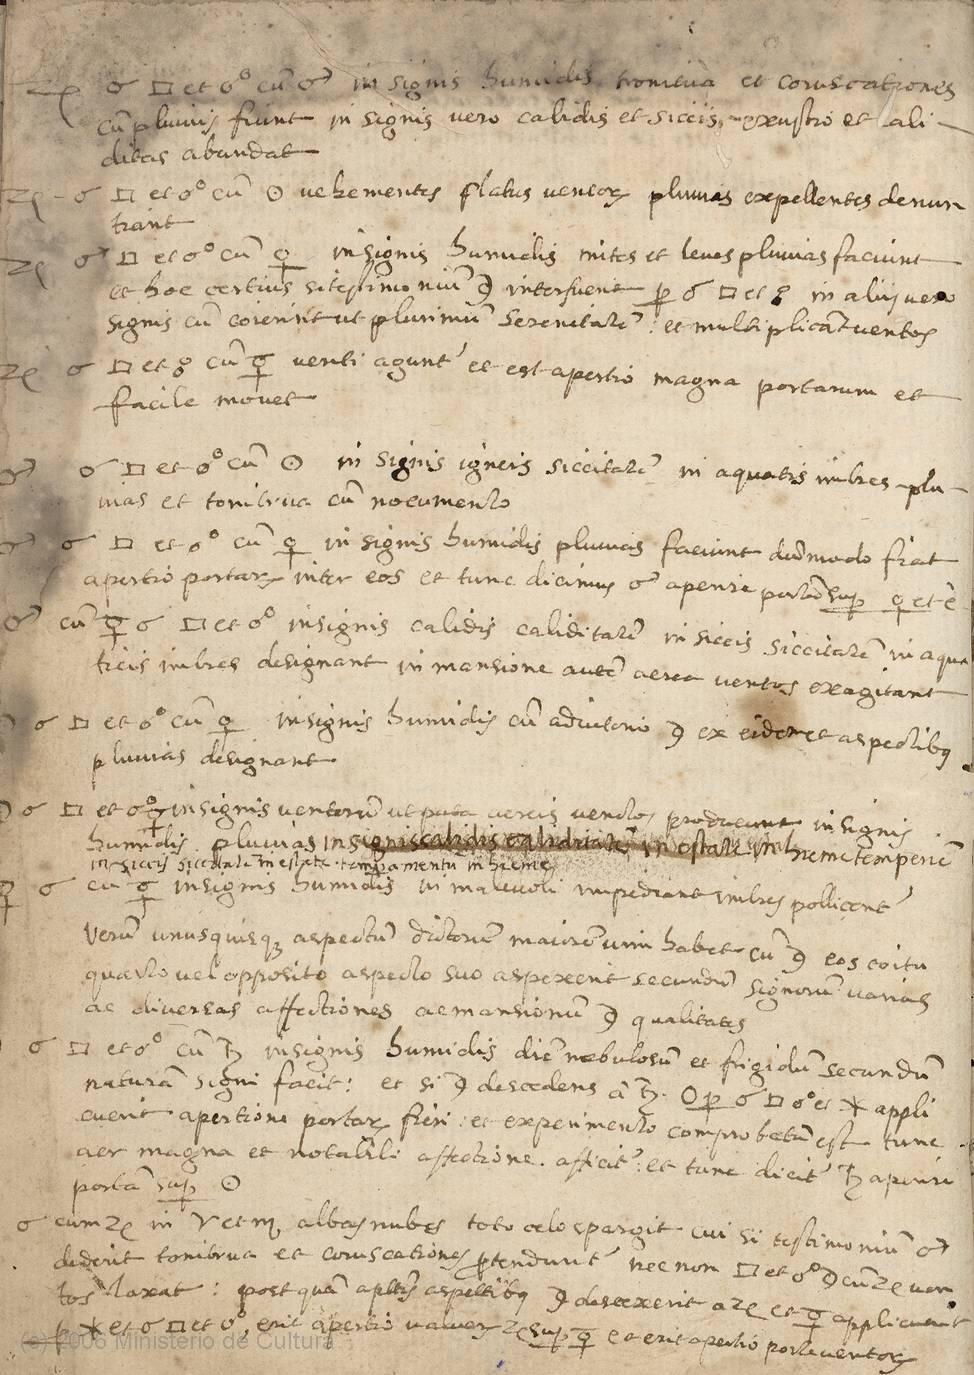 ♃ ☌ □ et ☍ cũ ♂ in signis humidis tronitua et coruscationes
cũ pluuiis fiunt in signis vero calidis et siccis, exustio et ali-
ditas abundat
♃ ☌ □ et ☍ cũ ☉ vehementes flatus ventoꝝ pluuias expellentes denun
tiant
♃ ☌ □ et ☍ cũ ♀ in signis humidis mites et leues pluuias faciunt
et hoc certius si testimoniũ ☽ interfuerit ꝑ ☌ □ et ☍ in aliis vero
signis cũ coierint ut plurimũ serenitatẽ : et multiplicãt ventos
♃ ☌ □ et ☍ cũ ☿ venti agunt' et est apertio magna portarum et
facile mouet
♂ ☌ □ et ☍ cũ ☉ in signis igneis siccitatẽ in aquatis imbres plu-
uias et tonitrua cũ nocumento
♂ ☌ □ et ☍ cũ ♀ in signis humidis pluuias faciunt dũmodo fiat
apertio portaꝝ inter eos et tunc dicimus ♂ aperire portã suꝑ ♀ et ẽ
♂ cũ ☿ ☌ □ et ☍ in signis calidis caliditatẽ in siccis siccitatẽ in aqua
ticis imbres designant in mansione autẽ aerea ventos exagitant
☌ □ et ☍ cũ ♀ in signis humidis cũ adiutorio ☽ ex eisdem et aspectibꝰ
pluuias designant
☌ □ et ☍ ☿ in signis ventorũ ut puta aereis ventos producunt in signis
humidis pluuias in signis calidis caliditatẽ in estate in hieme temperiẽ
in siccis siccitatẽ in estate temperamentũ in hieme
♀ ☌ cũ ☿ in signis humidis in maliuoli impediant imbres pollicent'
Verũ unusquisqꝫ aspectũ dictorũ maiorẽ uim habet cũ ☽ eos coitu
quarto vel opposito aspecto suo aspexerit secundũ signorũ varias
ac diuersas affectiones ac mansionũ ☽ qualitates
☌ □ et ☍ cũ ♄ in signis humidis diẽ nebulosũ et frigidũ secundũ
naturã signi facit : et si ☽ descedens â ♄ ☉ ꝑ ☌ □ ☍ et ✶ appli
cuerit apertione portaꝝ fieri : et experimento comprobatũ est tunc
aer magna et notabili affectione afficit' : et tunc dicit' ♄ aperire
portã suꝑ ☉
☌ cum ♃ in ♈ et ♏ albas nubes toto celo spargit cui si testimoniũ ♂
dederit tonitrua et coruscationes ꝓtendunt' nec non □ et ☍ ☽ cũ ♃ ven
tos laxat : post quã apltis aspectibꝰ ☽ descexerit a ♃ et ☿ applicuerit
ꝑ ✶ et ☌ □ et ☍, erit apertio valuaꝝ ♃ suꝑ ☿ et erit apertio porte ventoꝝ
(c) 2006 Ministerio de Cultura